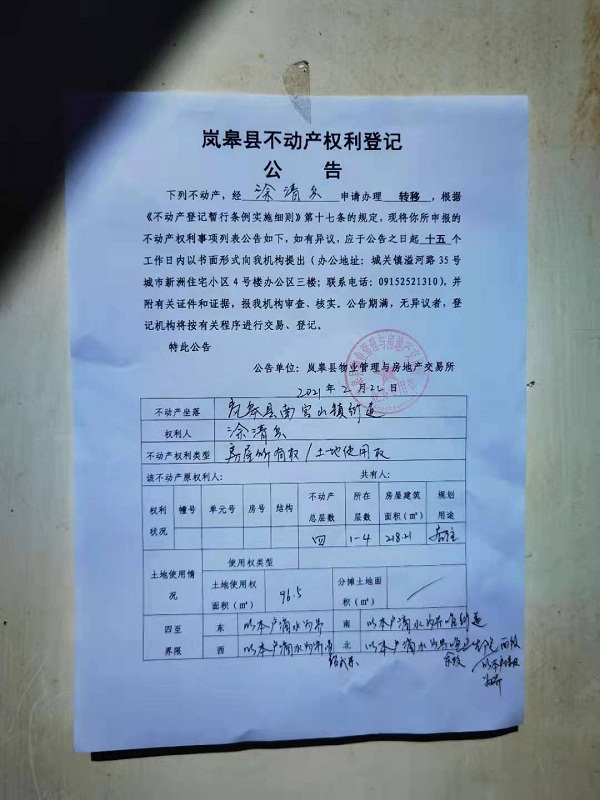 岚皋县不动产权利登记
公 告
下列不动产，经 涂清 申请办理 转移，根据
《不动产登记暂行条例实施细则》第十七条的规定，现将你所申报的
不动产权利事项列表公告如下，如有异议，应于公告之日起 十五 个
工作日内以书面形式向我机构提出（办公地址：城关镇溢河路 35 号
城市新洲住宅小区 4 号楼办公区三楼；联系电话：09152521310），并
附有关证件和证据，报我机构审查、核实。公告期满，无异议者，登
记机构将按有关程序进行交易、登记。
特此公告
公告单位：岚皋县物业管理与房地产交易所
2021 年 2 月 22 日
不动产坐落 岚皋县南宫山镇街道
权利人 涂清
不动产权利类型 房屋所有权/土地使用权
该不动产原权利人： 共有人：
权利状况 幢号 单元号 房号 结构 不动产总层数 所在层数 房屋建筑面积（㎡） 规划用途
四 1-4 218.21
土地使用情况 使用权类型
土地使用权面积（㎡） 96.5 分摊土地面积（㎡）
四至界限 东 以本户滴水为界 南 以本户滴水为界 街道
西 以本户滴水为界 北 以本户滴水为界